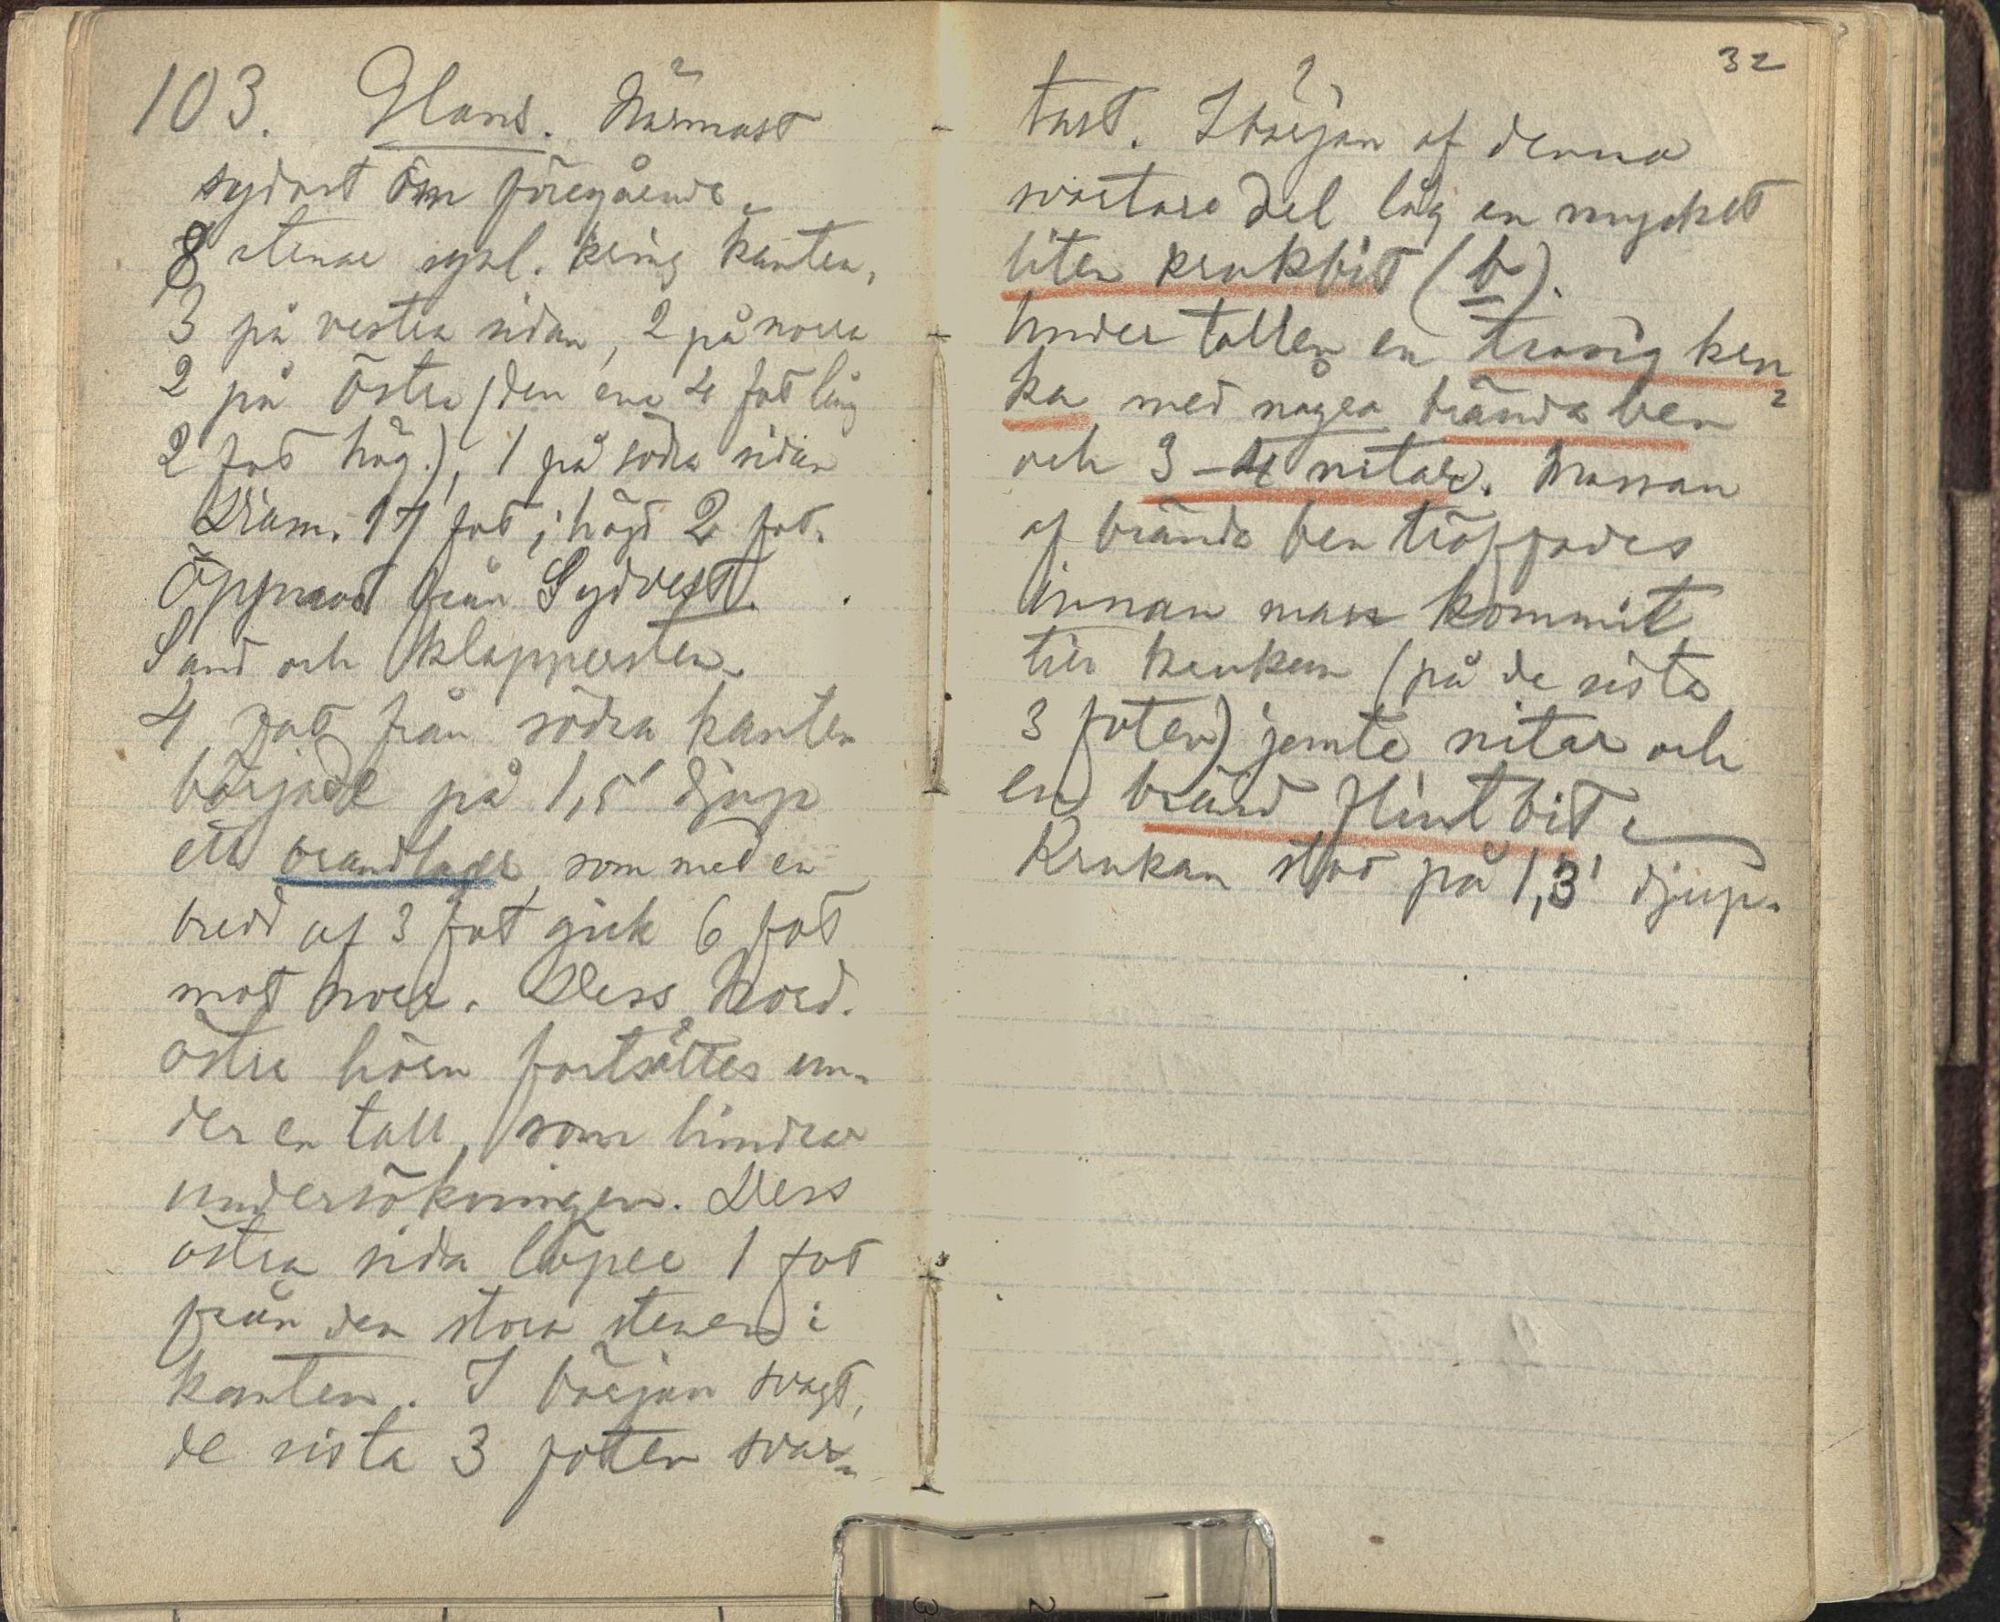 103. Glans. Närmast
sydost om föregående.
8 stenar synl. kring kanten,
3 på vestra sidan, 2 på norra
2 på östra (den ena 4 fot lång
2 fot hög.), 1 på södra sidan
Diam. 17 fot; höjd 2 fot.
Öppnad från Sydvest.
Sand och klappersten.
4 fot från södra kanten
började på 1,5' djup
ett brandlager, som med en
bredd af 3 fot gick 6 fot
mot norr. Dess nord.
östra hörn fortsattes un-
der en tall, som hindrar
undersökningen. Dess
östra sida löper 1 fot
från den stora stenen i
kanten. I början svagt,
de sista 3 foten svar-
32
tast. I början af denna
svartare del låg en mycket
liten krukbit (b).
Under tallen en trasig kru
ka med några brända ben
och 3-4 nitar. Massan
af brända ben träffades
innan man kommit
till krukan (på de sista
3 foten) jemte nitar och
en bränd flintbit.
Krukan stod på 1,3' djup.
3
2
1